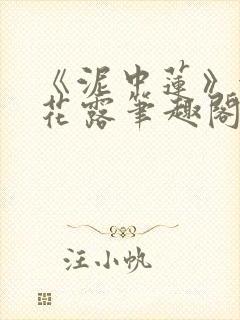 《泥中莲》
花露笔趣阁
汪小帆